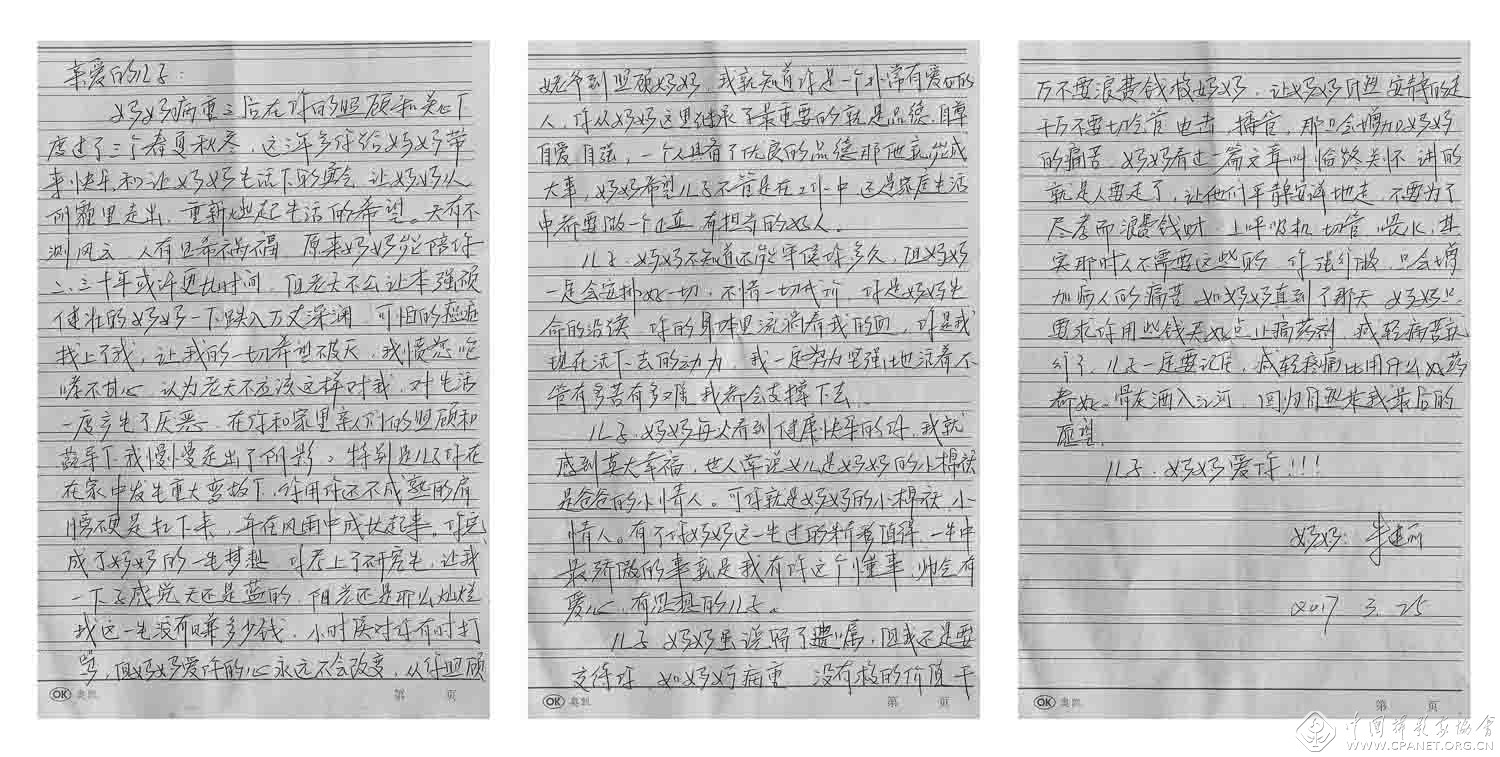 亲爱的儿子：
妈妈病重之后在你的照顾和关心下
度过了三个春夏秋冬，这三年多你给妈妈带
来快乐和让妈妈生活下的勇气，让妈妈从
阴霾里走出，重新燃起生活的希望。天有不
测风云，人有旦希祸福，原来妈妈能陪你
二、三十年或许更长时间，但老天不公让本强硕
健壮的妈妈一下跌入万丈深渊，可怕的癌症
找上了我，让我的一切希望破灭，我愤怒咆
哮不甘心，认为老天不应该这样对我，对生活
一度产生了厌恶，在你和家里亲人们的照顾和
疏导下我慢慢走出了阴影。特别是儿子你在
在家中发生重大变故下，你用你还不成熟的肩
膀硬是扛下来，并在风雨中成长起来。你完
成了妈妈的一生梦想，你考上了研究生，让我
一下子感觉天还是蓝的，阳光还是那么灿烂
我这一生没有赚多少钱，小时侯对你有时打
骂，但妈妈爱你的心永远不会改变，从你照顾
姥爷到照顾妈妈，我就知道你是一个非常有爱心的
人，你从妈妈这里继承了最重要的就是品德，自尊
自爱 自强，一个人具有了优良的品德那他就能成
大事，妈妈希望儿子不管是在工作中 还是家庭生活
中都要做一个正直、有担当的好人。
儿子，妈妈不知道还能等侯你多久，但妈妈
一定会安排好一切，不惜一切代价，你是妈妈生
命的沿续，你的身体里流淌着我的血，你是我
现在活下去的动力，我一定努力坚强地活着不
管有多苦有多难 我都会支撑下去。
儿子，妈妈每次看到健康快乐的你，我就
感到莫大幸福，世人常说女儿是妈妈的小棉袄
是爸爸的小情人。可你就是妈妈的小棉袄，小
情人。有了你妈妈这一生过的值得，一生中
最骄傲的事就是我有你这个懂事，帅气有
爱心，有思想的儿子。
儿子 妈妈虽说写了遗嘱，但我还是要
支待你，如妈妈病重，没有救的价值千
万不要浪费钱救妈妈，让妈妈自然安静的走
千万不要切除管 电击，插管，那只会增加妈妈
的痛苦，妈妈看过一篇文章叫 临终关怀 讲的
就是人要走了，让他们平静安详地走，不要为了
尽孝而浪费钱财，上呼吸机 切管 喂水，其
实那时人不需要这些的 你强行做，只会增
加病人的痛苦，如妈妈真到了那天，妈妈只
要求你用些钱买好点止痛药剂，减轻病苦就
行了，儿子一定要记住，减轻疼痛比用什么好药
都好。骨灰洒入江河，回归自然是我最后的
愿望。
儿子，妈妈爱你！！！
妈妈：
2017 3. 25
OK 奥凯 第 页
OK 奥凯 第 页
OK 奥凯 第 页
中国摄影家协会
WWW.CPANET.ORG.CN